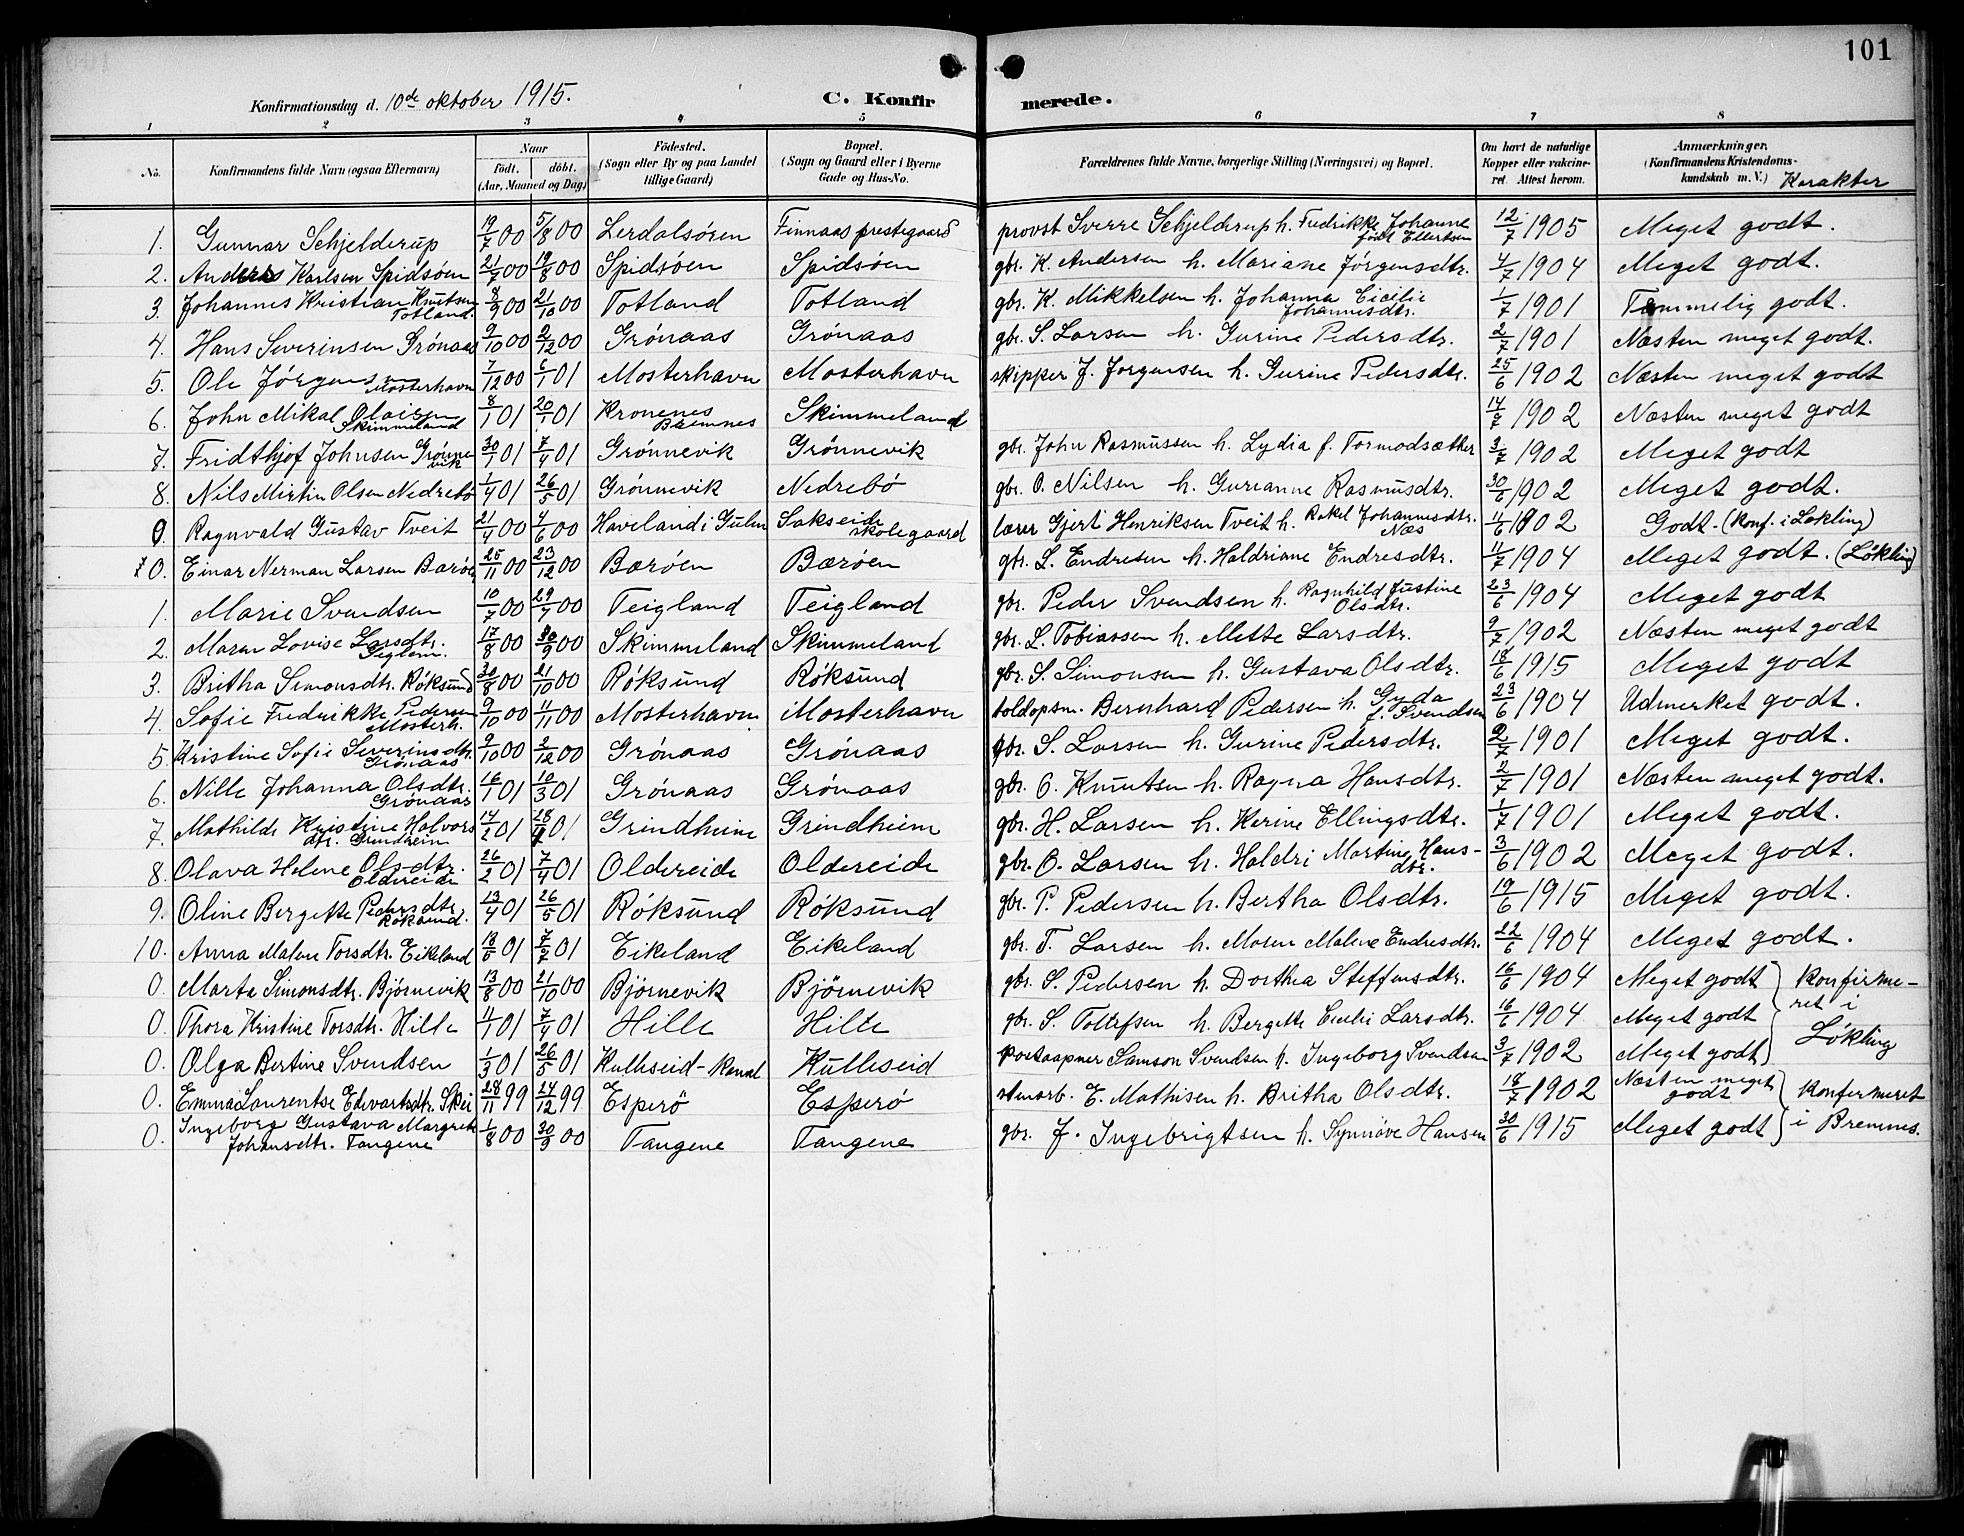 101
Konfirmationsdag d. 10de oktober 1915. C. Konfirmerede.
1 2 3 4 5 6 7 8
No. Konfirmandens fulde Navn (ogsaa Efternavn) Naar født. døbt. (Aar, Maaned og Dag) Fødested. (Sogn eller By og paa Landet tillige Gaard) Bopæl. (Sogn og Gaard eller i Byerne Gade og Hus-No. Forældrenes fulde Navne, borgerlige Stilling (Næringsvei) og Bopæl. Om havt de naturlige Kopper eller vakcineret. Attest herom. Anmærkninger. (Konfirmandens Kristendomskundskab m. V.) Karakter
1. Gunnar Schjelderup 19/7 00 5/8 00 Lerdalsören Finnaas prestegaard provst Sverre Schjelderup h. Fredrikke Johanne født Ellertsen 12/7 1905 Meget godt.
2. Anders Karlsen Spidsöen 21/7 00 19/8 00 Spidsöen Spidsöen gbr. K. Andersen h. Mariane Jörgensdtr. 4/7 1904 Meget godt.
3. Johannes Kristian Knutsen Totland. 8/9 00 21/10 00 Totland Totland gbr. K. Mikkelsen h. Johanna Cicilie Johannesdtr. 1/7 1901 Temmelig godt.
4. Hans Severinsen Grönaas 9/10 00 2/12 00 Grönaas Grönaas gbr. S. Larsen h. Gurine Pedersdtr. 2/7 1901 Næsten meget godt.
5. Ole Jörgensen Mosterhavn 7/12 00 6/1 01 Mosterhavn Mosterhavn skipper J. Jorgensen h. Gurine Pedersdtr. 25/6 1902 Næsten meget godt
6. John Mikal Olaisen Skimmeland 8/1 01 20/1 01 Kronenes Bremnes Skimmeland 14/7 1902 Næsten meget godt
7. Fridthjof Johnsen Grönnevik 30/1 01 7/4 01 Grönnevik Grönnevik gbr. John Rasmussen h. Lydia f. Tormodsæther 3/7 1902 Meget godt
8. Nils Martin Olsen Nedrebö 1/4 01 26/5 01 Grönnevik Nedrebö gbr. O. Nilsen h. Gurianne Rasmusdtr. 30/6 1902 Meget godt.
0 Ragnvald Gustav Tveit 21/4 00 4/6 00 Haveland i Gulen Sakseide skolegaard lærer Gjert Henriksen Tveit h. Rakel Johannesdtr. Næs 11/6 1902 Godt. (Konf. i Løkling)
0. Einar Nerman Larsen Baröen 25/11 00 23/12 00 Bæröen Bæröen gbr. L. Endresen h. Haldriane Endresdtr. 11/7 1904 Meget godt. (Lökling)
1. Marie Svendsen 10/7 00 29/7 00 Teigland Teigland gbr. Peder Svendsen h. Ragnhild Justine Olsdtr. 23/6 1904 Meget godt
2. Maren Lovise Larsdtr. 17/8 00 30/9 00 Skimmeland Skimmeland gbr. L. Tobiassen h. Mette Larsdtr. 9/7 1902 Næsten meget godt
3. Britha Simonsdtr. Röksund 30/8 00 21/10 00 Röksund Röksund gbr. S. Simonsen h. Gustava Olsdtr. 18/6 1915 Meget godt
4. Sofie Fredrikke Pedersen Mosterh. 9/10 00 11/11 00 Mosterhavn Mosterhavn toldopsm. Bernhard Pedersen h. Gyda f. Svendsen 23/6 1904 Udmerket godt
5. Kristine Sofie Severinsdtr. Grönaas 9/10 00 2/12 00 Grönaas Grönaas gbr. S. Larsen h. Gurine Pedersdtr. 2/7 1901 Meget godt.
6. Nille Johanna Olsdtr. Grönaas 16/1 01 10/3 01 Grönaas Grönaas gbr. O. Knutsen h. Ragna Hansdtr. 2/7 1901 Næsten meget godt.
7. Mathilde Kristine Halvorsdtr. Grindheim 14/2 01 28/4 01 Grindheim Grindheim gbr. H. Larsen h. Kerine Ellingsdtr. 1/7 1901 Meget godt.
8. Olava Helene Olsdtr. Oldereide 26/2 01 7/4 01 Oldereide Oldereide gbr. O. Larsen h. Haldri Martine Hansdtr. 3/6 1902 Meget godt.
9. Oline Bergette Pedersdtr. Röksund. 13/4 01 26/5 01 Röksund Röksund gbr. P. Pedersen h. Bertha Olsdtr. 19/6 1915 Meget godt.
10. Anna Malene Torsdtr. Eikeland 18/5 01 7/7 01 Eikeland Eikeland gbr. T. Larsen h. Maren Malene Endresdtr. 22/6 1904 Meget godt.
0. Marta Simonsdtr. Björnevik 13/8 00 21/10 00 Björnevik Björnevik gbr. S. Pedersen h. Dorthea Steffensdtr. 16/6 1904 Meget godt konfirmeret i Lökling
0. Thora Kristine Torsdtr. Hille 11/1 01 7/4 01 Hille Hille gbr. S. Toltefsen h. Bergette Cecilie Larsdtr. 16/6 1904 Meget godt
0. Olga Bertine Svendsen 1/3 01 26/5 01 Kulleseid-Kanal Kulleseid postaapner Samson Svendsen h. Ingeborg Svendsen 3/7 1902 Meget godt
0. Emma Laurentse Edvartsdtr. Skei 28/11 99 24/12 99 Esperö Esperö stenarb. E. Mathisen h. Britha Olsdtr. 18/7 1902 Næsten meget godt konfirmeret i Bremnes.
0. Ingeborg Gustava Margrete Johansdtr. Tangene 1/8 00 30/3 00 Tangene Tangene gbr. J. Ingebrigtsen h. Synnöve Hansen 30/6 1915 Meget godt